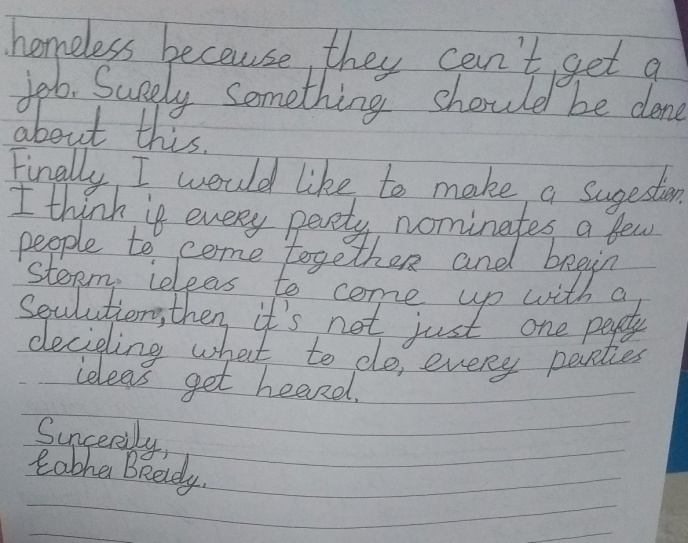 homeless because they can't get a
job. Surely something should be done
about this.
Finally I would like to make a sugestion.
I think if every party nominates a few
people to come together and brain
storm ideas to come up with a
soulution, then it's not just one party
deciding what to do, every parties
ideas get heard.
Sincerily,
Eabha Bready.